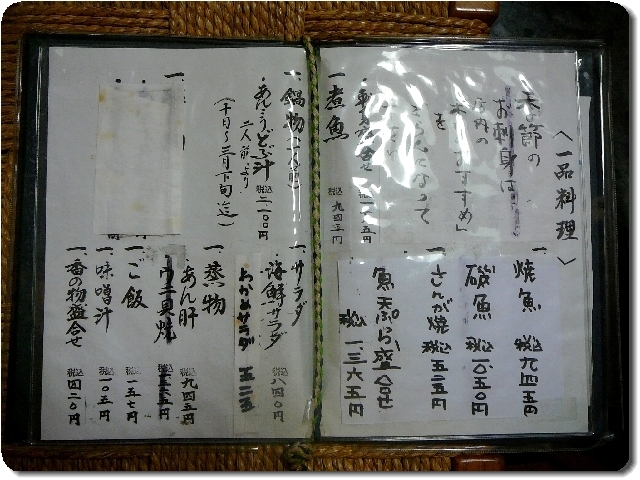 〈一品料理〉
季節の
お刺身は
店内の
「本日のおすすめ」
を
ごらんになって
一 煮魚 税込 九四五円
一 焼魚 税込 九四五円
磯魚 税込 一〇五〇円
一 さんが焼 税込 五二五円
魚天ぷら盛合せ
税込 一三六五円
一 鍋物(二人前)
・あんこうどぶ汁 税込 二一〇〇円
二人前より
(十日〜三月下旬迄)
一 サラダ
海鮮サラダ 税込 八四〇円
わかめサラダ 五二五
一 蒸物
あん肝 税込 九四五円
ウニ貝焼
一 ご飯 税込 一五七円
一 味噌汁 税込 一〇五円
一 香の物盛合せ 税込 四二〇円